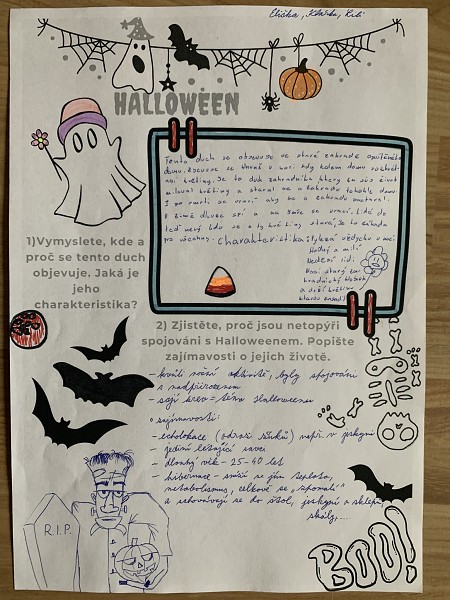 Eliška, Klárka, Lili
HALLOWEEN
Tento duch se objevuje ve staré zahradě opuštěného
domu. Zjevuje se v noci, kdy kolem domu rozkvétají
noční květiny. Je to duch zahradníka, který za svůj život
miloval květiny a staral se o zahradu tohohle domu.
I po smrti se vrací, aby se o zahradu postaral.
V zimě dlouze spí a na jaře se vrací. Lidé do
teď neví, kdo se o ty květiny stará, je to záhada
pro všechny. Charakteristika: Plyne vždycky v noci
Hodný a milý
Neděsí lidi
Nosí starý
zahradnický klobouk
a drží květinu
1) Vymyslete, kde a
proč se tento duch
objevuje. Jaká je
jeho
charakteristika?
2) Zjistěte, proč jsou netopýři
spojováni s Halloweenem. Popište
zajímavosti o jejich životě.
- kvůli noční aktivitě, byly spojováni
s nadpřirozenem
- sají krev = téma Halloweenu
• zajímavosti:
- echolokace (odrazí zvuků) např. v jeskyni
- jediní létající savci
- dlouhý věk - 25-40 let
- hibernace - sníží se jim teplota,
metabolismus, celkově se "zpomalí"
a schovávají se do štol, jeskyní a sklepů,
skály,...
R.I.P.
BOO!